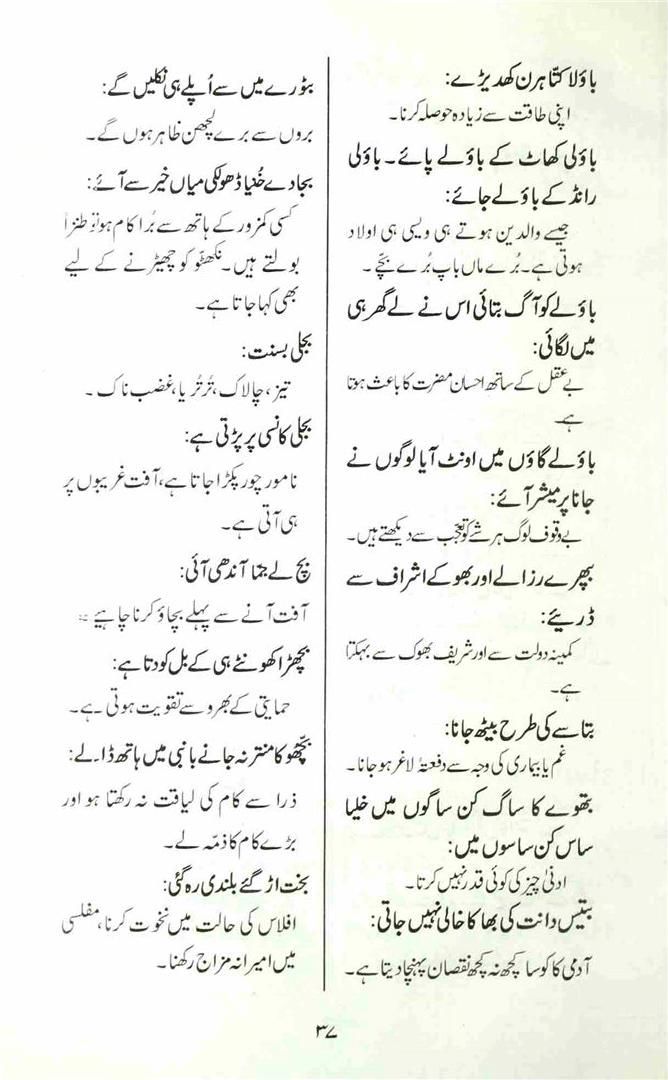 باؤلا کتّا ہرن کھدیڑے:
اپنی طاقت سے زیادہ حوصلہ کرنا۔
باؤلی کھاٹ کے باؤلے پائے۔ باؤلی
رانڈ کے باؤلے جائے:
جیسے والدین ہوتے ہی ویسی ہی اولاد
ہوتی ہے۔ بُرے ماں باپ بُرے بچّے۔
باؤلے کو آگ بتائی اس نے لے گھر ہی
میں لگائی:
بے عقل کے ساتھ احسان مضرت کا باعث ہوتا
ہے۔
باؤلے گاؤں میں اونٹ آیا لوگوں نے
جانا پرمیشر آئے:
بے وقوف لوگ ہر شے کو تعجّب سے دیکھتے ہیں۔
بپھرے رزالے اور بھوکے اشراف سے
ڈریئے:
کمینہ دولت سے اور شریف بھوک سے بہکتا
ہے۔
بتاسے کی طرح بیٹھ جانا:
غم یا بیماری کی وجہ سے دفعتہً لاغر ہو جانا۔
بتھوے کا ساگ کن ساگوں میں خلیا
ساس کن ساسوں میں:
ادنیٰ چیز کی کوئی قدر نہیں کرتا۔
بتیس دانت کی بھاکا خالی نہیں جاتی:
آدمی کا کوسا کچھ نہ کچھ نقصان پہنچا دیتا ہے۔
بٹورے میں سے اُپلے ہی نکلیں گے:
بروں سے برے لچھن ظاہر ہوں گے۔
بجا دے خُنیا ڈھولکی میاں خیر سے آئے:
کسی کمزور کے ہاتھ سے بُرا کام ہو تو طنزاً
بولتے ہیں۔ نکھٹّو کو چھیڑنے کے لیے
بھی کہا جاتا ہے۔
بجلی بسنت:
تیز، چالاک، تُرتُریا، غضب ناک۔
بجلی کانسی پر پڑتی ہے:
نامور چور پکڑا جاتا ہے، آفت غریبوں پر
ہی آتی ہے۔
بچ لے جمّا آندھی آئی:
آفت آنے سے پہلے بچاؤ کرنا چاہیے۔
بچھڑا کھونٹے ہی کے بل کودتا ہے:
حمایتی کے بھروسے تقویت ہوتی ہے۔
بچّھو کا منتر نہ جانے بانبی میں ہاتھ ڈالے:
ذرا سے کام کی لیاقت نہ رکھتا ہو اور
بڑے کام کا ذمّہ لے۔
بخت اڑ گئے بلندی رہ گئی:
افلاس کی حالت میں نخوت کرنا، مفلسی
میں امیرانہ مزاج رکھنا۔
۳۷